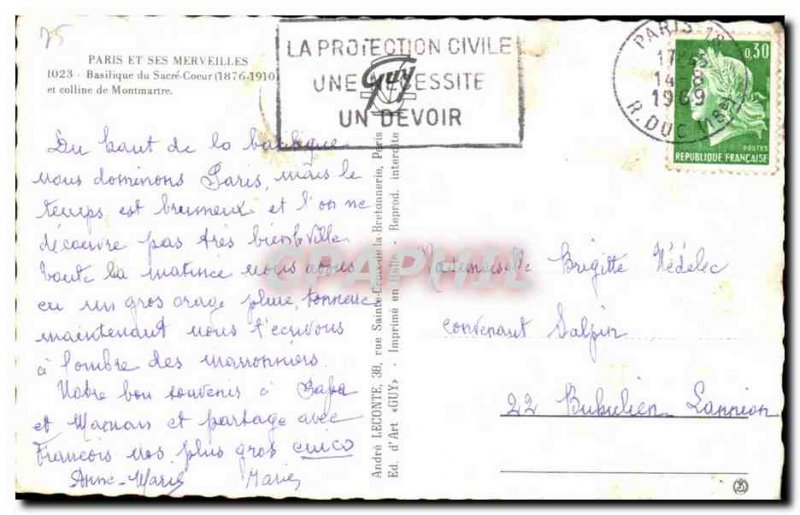 75
PARIS ET SES MERVEILLES
1023 - Basilique du Sacré-Coeur (1876-1910)
et colline de Montmartre.
LA PROTECTION CIVILE
UNE NECESSITE
UN DEVOIR
Guy
PARIS 18
17H
14 - 8
1969
R. DUC (18e)
0,30
POSTES
REPUBLIQUE FRANÇAISE
Du haut de la basilique
nous dominons Paris, mais le
temps est brumeux et l'on ne
découvre pas très bien la ville
toute la matinée nous avons
eu un gros orage pluie, tonnerre
maintenant nous t'écrivons
à l'ombre des marronniers.
Notre bon souvenir à Papa
et Maman et partage avec
François nos plus gros
Anne-Marie Marie
André LECONTE, 38, rue Sainte-Croix-de-la-Bretonnerie, Paris
Ed. d'Art «GUY» - Imprimé en Italie - Reprod. interdite
CPAPHIL
Mademoiselle Brigitte Nédélec
convenant
22 Lannion